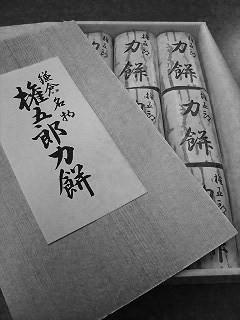 鎌倉名物
権五郎力餅
力餅
力餅
権五郎
力餅
権五郎